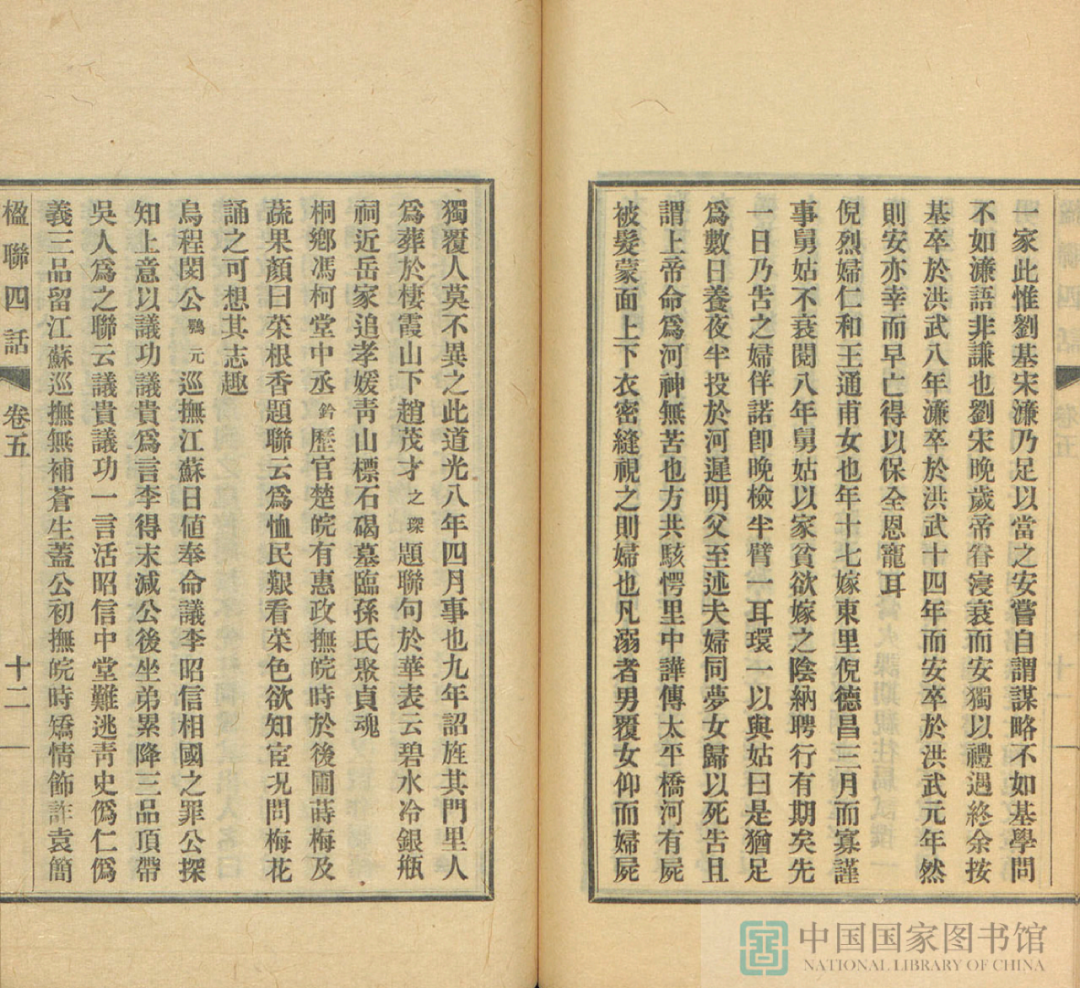 一家此惟劉基宋濂乃足以當之安嘗自謂謀略不如基學問
不如濂語非謙也劉宋晚歲帝眷寖衰而安獨以禮遇終余按
基卒於洪武八年濂卒於洪武十四年而安卒於洪武元年然
則安亦幸而早亡得以保全恩寵耳
倪烈婦仁和王通甫女也年十七嫁東里倪德昌三月而寡謹
事舅姑不衰閱八年舅姑以家貧欲嫁之陰納聘行有期矣先
一日乃告之婦佯諾卽晚檢半臂一耳環一以與姑曰是猶足
爲數日養夜半投於河遲明父至述夫婦同夢女歸以死告且
謂上帝命爲河神無苦也方共駭愕里中譁傳太平橋河有屍
被髮蒙面上下衣密縫視之則婦也凡溺者男覆女仰而婦屍
獨覆人莫不異之此道光八年四月事也九年詔旌其門里人
爲葬於棲霞山下趙茂才之琛題聯句於華表云碧水冷銀瓶
祠近岳家追孝媛靑山標石碣墓臨孫氏聚貞魂
桐鄉馮柯堂中丞鈐歷官楚皖有惠政撫皖時於後圃蒔梅及
蔬果顏曰菜根香題聯云爲恤民艱看菜色欲知宦況問梅花
誦之可想其志趣
烏程閔公鶚元巡撫江蘇日値奉命議李昭信相國之罪公探
知上意以議功議貴爲言李得末減公後坐弟累降三品頂帶
吳人爲之聯云議貴議功一言活昭信中堂難逃靑史僞仁僞
義三品留江蘇巡撫無補蒼生蓋公初撫皖時矯情飾詐袁簡
楹聯四話 卷五 十二
中国国家图书馆
NATIONAL LIBRARY OF CHINA